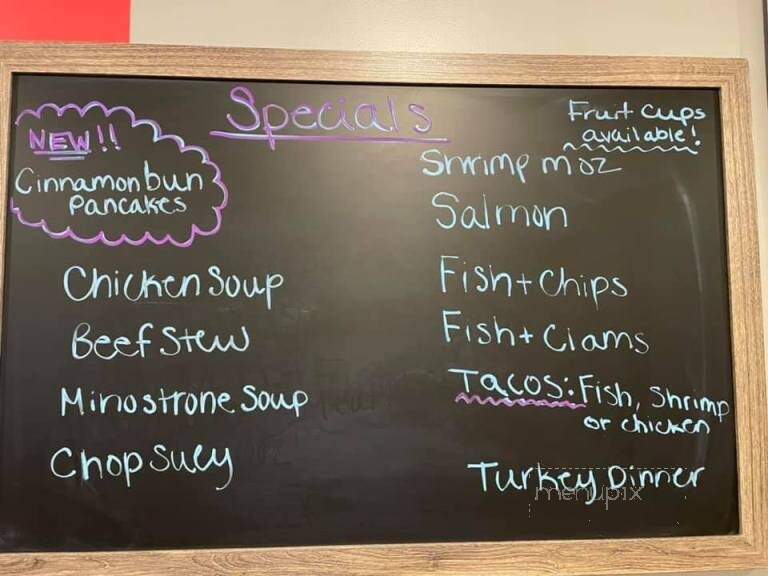 Specials
NEW!!
Cinnamon bun
Pancakes
Chicken Soup
Beef Stew
Minostrone Soup
Chop Suey
Fruit Cups
available!
Shrimp moz
Salmon
Fish + Chips
Fish + Clams
Tacos: Fish, Shrimp
or chicken
Turkey Dinner
menupix